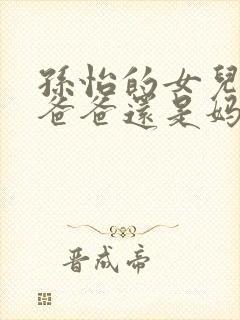 孫怡的女兒
爸爸還是媽
晋成帝